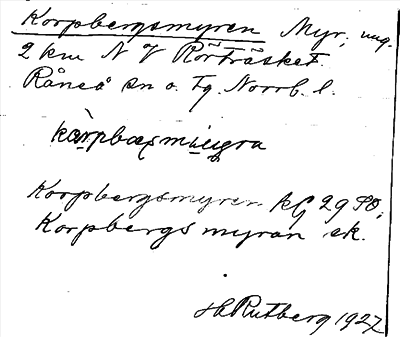 Korpbergsmyren Myr, ung.
2 km N V Rörträsket.
Råneå sn o. Tg. Norrb. l.
Korpbergsmyren kG 29 SO,
Korpbergsmyran ek.
H Rutberg 1927